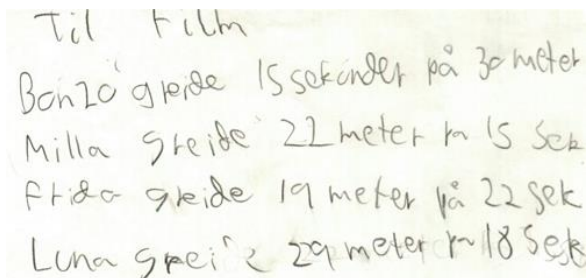 Til Film
Bonzo greide 15 sekunder på 30 meter
Milla greide 22 meter på 15 sek
Frida greide 19 meter på 22 sek
Luna greide 29 meter på 18 sek